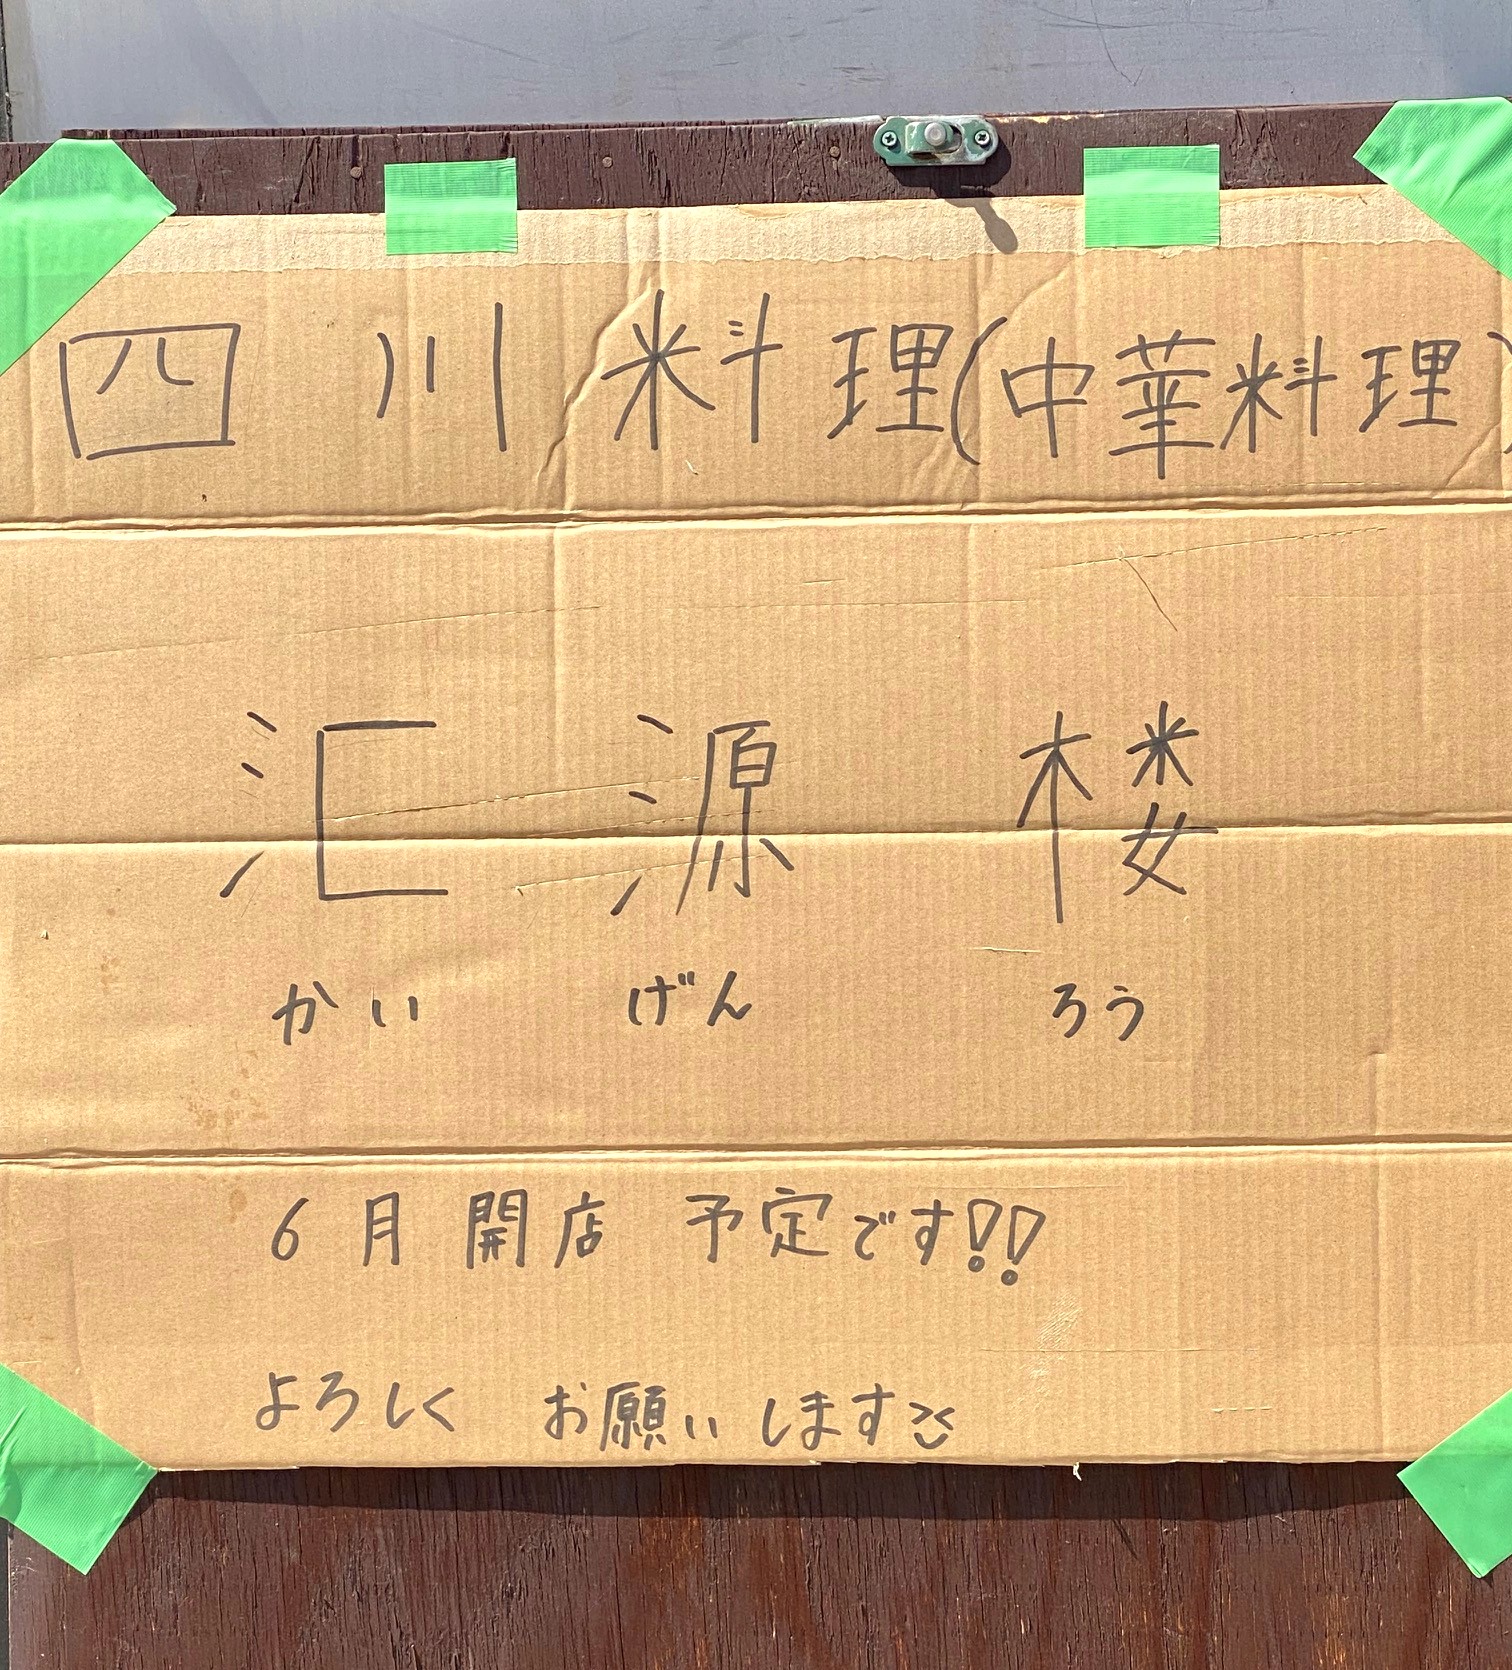 四川料理(中華料理)
汇源楼
かいげんろう
6月開店 予定です!!
よろしく お願いします